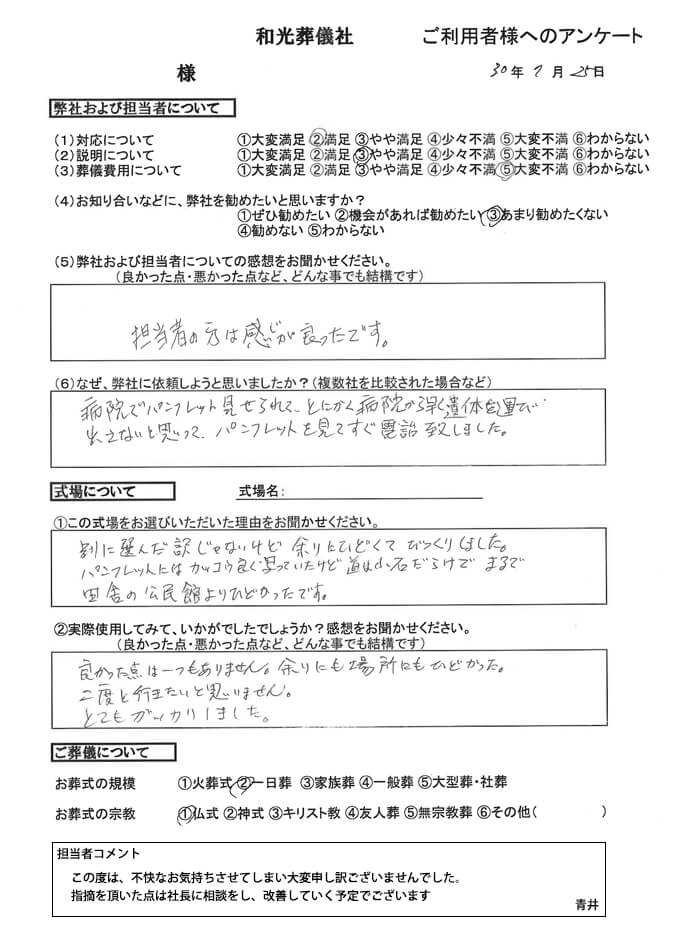 和光葬儀社 ご利用者様へのアンケート
様 30年7月25日
弊社および担当者について
(1)対応について ①大変満足 ②満足 ③やや満足 ④少々不満 ⑤大変不満 ⑥わからない
(2)説明について ①大変満足 ②満足 ③やや満足 ④少々不満 ⑤大変不満 ⑥わからない
(3)葬儀費用について ①大変満足 ②満足 ③やや満足 ④少々不満 ⑤大変不満 ⑥わからない
(4)お知り合いなどに、弊社を勧めたいと思いますか？
①ぜひ勧めたい ②機会があれば勧めたい ③あまり勧めたくない
④勧めない ⑤わからない
(5)弊社および担当者についての感想をお聞かせください。
(良かった点・悪かった点など、どんな事でも結構です)
担当者の方は感じが良ったです。
(6)なぜ、弊社に依頼しようと思いましたか？(複数社を比較された場合など)
病院でパンフレット見せられて、とにかく病院から早く遺体を運び
出さないと思って、パンフレットを見てすぐ電話致しました。
式場について 式場名：
①この式場をお選びいただいた理由をお聞かせください。
別に選んだ訳じゃないけど余りにひどくてびっくりしました。
パンフレットにはカッコウ良く写っていたけど道は小石だらけでまるで
田舎の公民館よりひどかったです。
②実際使用してみて、いかがでしたでしょうか？感想をお聞かせください。
(良かった点・悪かった点など、どんな事でも結構です)
良かった点は一つもありません。余りにも場所にもひどかった。
二度と行きたいと思いません。
とてもガッカリしました。
ご葬儀について
お葬式の規模 ①火葬式 ②一日葬 ③家族葬 ④一般葬 ⑤大型葬・社葬
お葬式の宗教 ①仏式 ②神式 ③キリスト教 ④友人葬 ⑤無宗教葬 ⑥その他( )
担当者コメント
この度は、不快なお気持ちさせてしまい大変申し訳ございませんでした。
指摘を頂いた点は社長に相談をし、改善していく予定でございます
青井